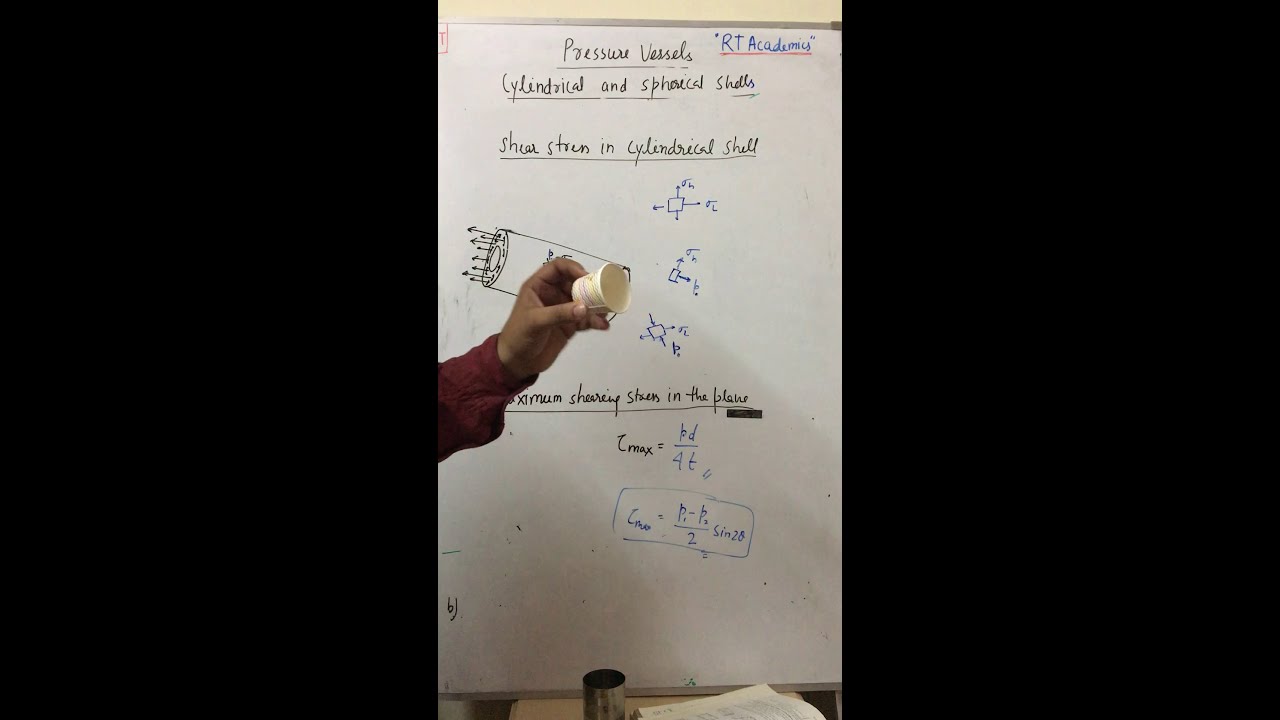 T
Pressure Vessels
"RT Academics"
Cylindrical and spherical shells
Shear stress in cylindrical shell
σh
σL
σh
p
σL
p
Maximum shearing stress in the plane
τmax = pd/4t
τmax = p₁-p₂/2 sin2θ
b)